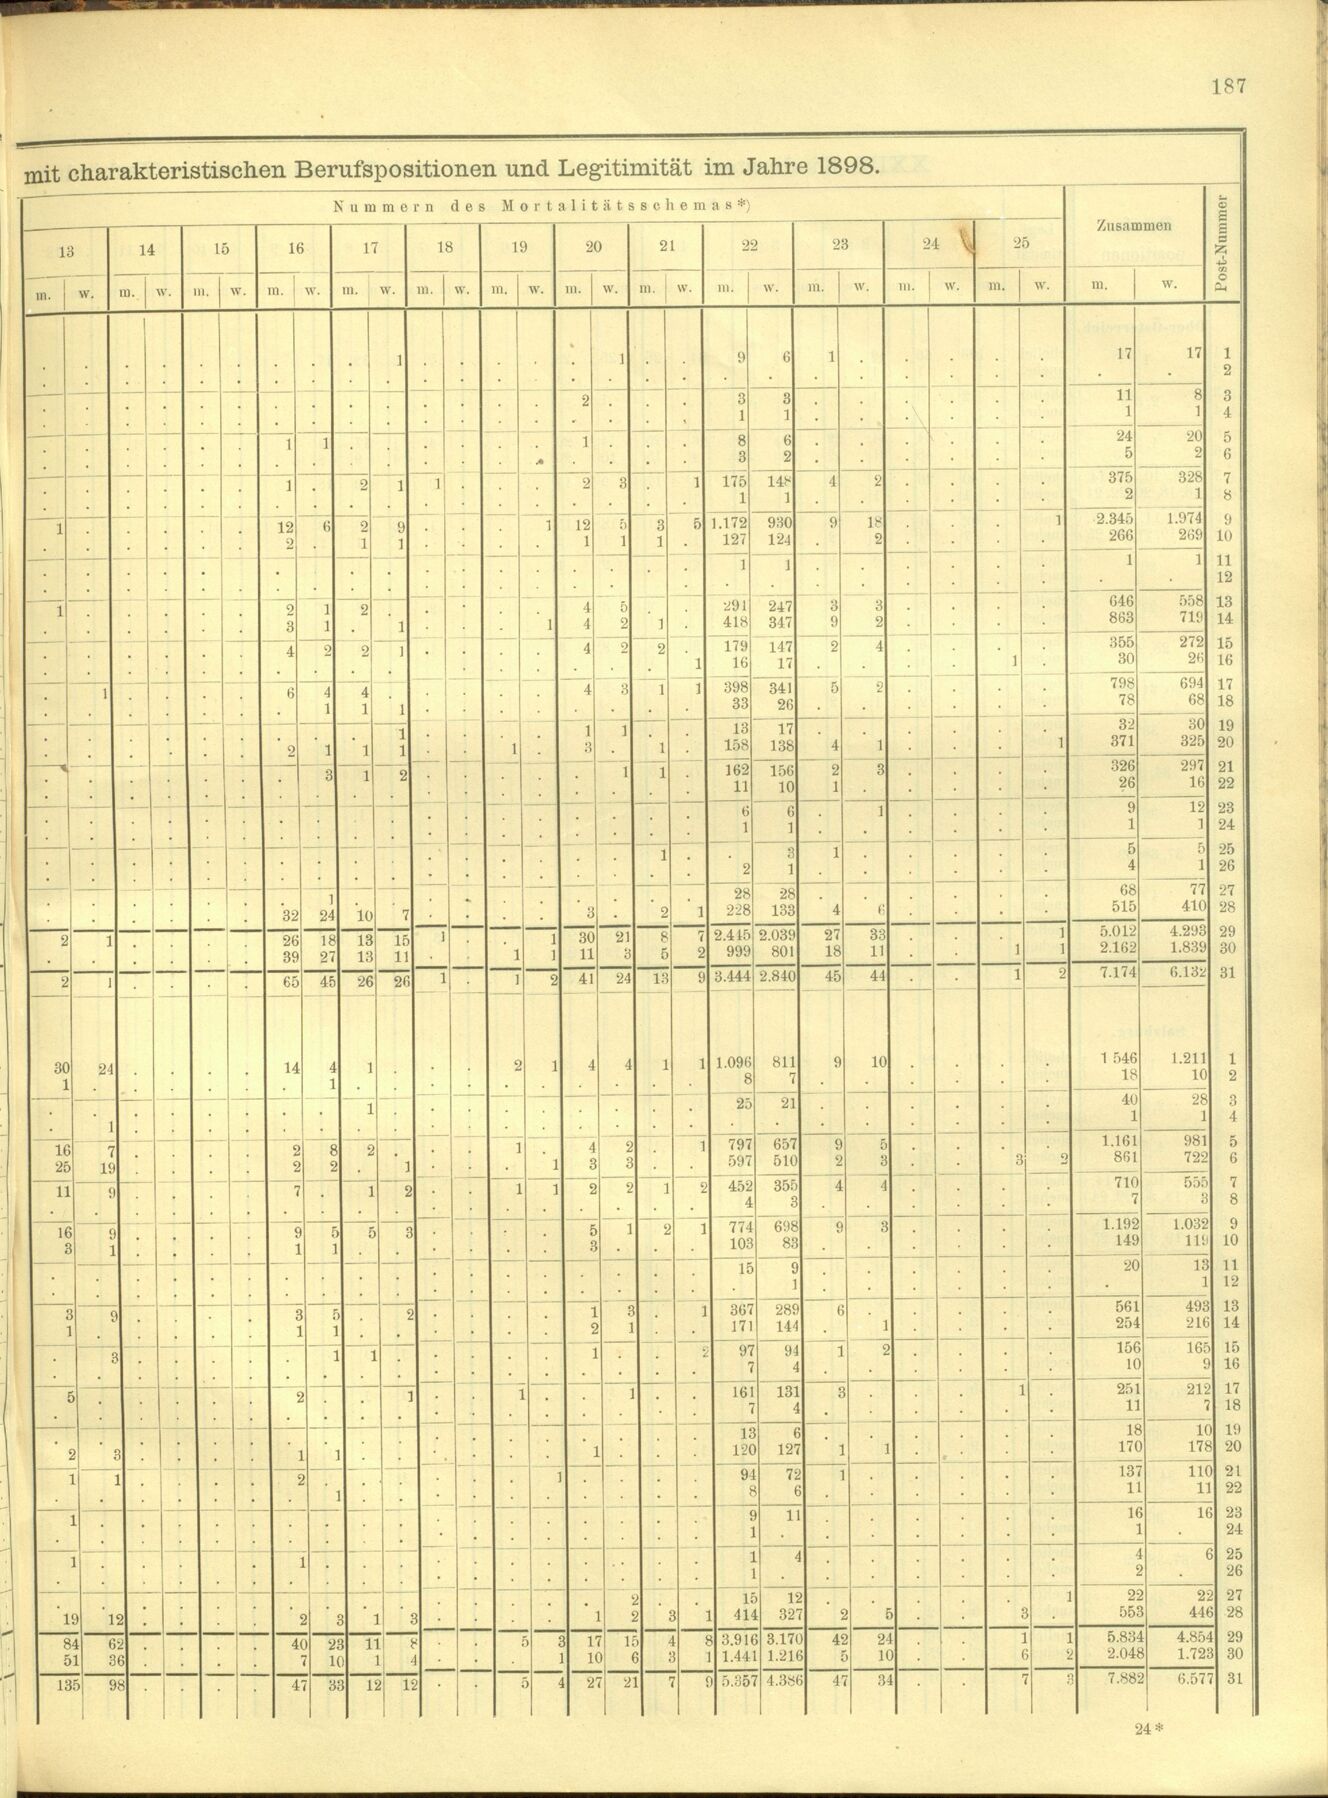 187
mit charakteristischen Berufspositionen und Legitimität im Jahre 1898.
Nummern des Mortalitätsschemas*) Zusammen Post-Nummer
13 14 15 16 17 18 19 20 21 22 23 24 25
m. w. m. w. m. w. m. w. m. w. m. w. m. w. m. w. m. w. m. w. m. w. m. w. m. w. m. w.
. . . . . . . . . 1 . . . . . 1 . . 9 6 1 . . . . . 17 17 1
. . . . . . . . . . . . . . . . . . . . . . . . . . . . 2
. . . . . . . . . . . . . . 2 . . . 3 3 . . . . . . 11 8 3
. . . . . . . . . . . . . . . . . . 1 1 . . . . . . 1 1 4
. . . . . . 1 1 . . . . . . 1 . . . 8 6 . . . . . . 24 20 5
. . . . . . . . . . . . . . . . . . 3 2 . . . . . . 5 2 6
. . . . . . 1 . 2 1 1 . . . 2 3 . 1 175 148 4 2 . . . . 375 328 7
. . . . . . . . . . . . . . . . . . 1 1 . . . . . . 2 1 8
1 . . . . . 12 6 2 9 . . . 1 12 5 3 5 1.172 930 9 18 . . . 1 2.345 1.974 9
. . . . . . 2 . 1 1 . . . . 1 1 1 . 127 124 . 2 . . . . 266 269 10
. . . . . . . . . . . . . . . . . . 1 1 . . . . . . 1 1 11
. . . . . . . . . . . . . . . . . . . . . . . . . . . . 12
1 . . . . . 2 1 2 . . . . . 4 5 . . 291 247 3 3 . . . . 646 558 13
. . . . . . 3 1 . 1 . . . 1 4 2 1 . 418 347 9 2 . . . . 863 719 14
. . . . . . 4 2 2 1 . . . . 4 2 2 . 179 147 2 4 . . . . 355 272 15
. . . . . . . . . . . . . . . . . 1 16 17 . . . . 1 . 30 26 16
. 1 . . . . 6 4 4 . . . . . 4 3 1 1 398 341 5 2 . . . . 798 694 17
. . . . . . . 1 1 1 . . . . . . . . 33 26 . . . . . . 78 68 18
. . . . . . . . . 1 . . . . 1 1 . . 13 17 . . . . . . 32 30 19
. . . . . . 2 1 1 1 . . 1 . 3 . 1 . 158 138 4 1 . . . 1 371 325 20
. . . . . . . 3 1 2 . . . . . 1 1 . 162 156 2 3 . . . . 326 297 21
. . . . . . . . . . . . . . . . . . 11 10 1 . . . . . 26 16 22
. . . . . . . . . . . . . . . . . . 6 6 . 1 . . . . 9 12 23
. . . . . . . . . . . . . . . . . . 1 1 . . . . . . 1 1 24
. . . . . . . . . . . . . . . . 1 . . 3 1 . . . . . 5 5 25
. . . . . . . . . . . . . . . . . . 2 1 . . . . . . 4 1 26
. . . . . . . 1 . . . . . . . . . . 28 28 . . . . . . 68 77 27
. . . . . . 32 24 10 7 . . . . 3 . 2 1 228 133 4 6 . . . . 515 410 28
2 1 . . . . 26 18 13 15 1 . . 1 30 21 8 7 2.445 2.039 27 33 . . . 1 5.012 4.293 29
. . . . . . 39 27 13 11 . . 1 1 11 3 5 2 999 801 18 11 . . 1 1 2.162 1.839 30
2 1 . . . . 65 45 26 26 1 . 1 2 41 24 13 9 3.444 2.840 45 44 . . 1 2 7.174 6.132 31
30 24 . . . . 14 4 1 . . . 2 1 4 4 1 1 1.096 811 9 10 . . . . 1 546 1.211 1
1 . . . . . . 1 . . . . . . . . . . 8 7 . . . . . . 18 10 2
. . . . . . . . 1 . . . . . . . . . 25 21 . . . . . . 40 28 3
. 1 . . . . . . . . . . . . . . . . . . . . . . . . 1 1 4
16 7 . . . . 2 8 2 . . . 1 . 4 2 . 1 797 657 9 5 . . . . 1.161 981 5
25 19 . . . . 2 2 . 1 . . . 1 3 3 . . 597 510 2 3 . . 3 2 861 722 6
11 9 . . . . 7 . 1 2 . . 1 1 2 2 1 2 452 355 4 4 . . . . 710 555 7
. . . . . . . . . . . . . . . . . . 4 3 . . . . . . 7 3 8
16 9 . . . . 9 5 5 3 . . . . 5 1 2 1 774 698 9 3 . . . . 1.192 1.032 9
3 1 . . . . 1 1 . . . . . . 3 . . . 103 83 . . . . . . 149 119 10
. . . . . . . . . . . . . . . . . . 15 9 . . . . . . 20 13 11
. . . . . . . . . . . . . . . . . . . 1 . . . . . . . 1 12
3 9 . . . . 3 5 . 2 . . . . 1 3 . 1 367 289 6 . . . . . 561 493 13
1 . . . . . 1 1 . . . . . . 2 1 . . 171 144 . 1 . . . . 254 216 14
. 3 . . . . . 1 1 . . . . . 1 . . 2 97 94 1 2 . . . . 156 165 15
. . . . . . . . . . . . . . . . . . 7 4 . . . . . . 10 9 16
5 . . . . . 2 . . 1 . . 1 . . 1 . . 161 131 3 . . . 1 . 251 212 17
. . . . . . . . . . . . . . . . . . 7 4 . . . . . . 11 7 18
. . . . . . . . . . . . . . . . . . 13 6 . . . . . . 18 10 19
2 3 . . . . 1 1 . . . . . . 1 . . . 120 127 1 1 . . . . 170 178 20
1 1 . . . . 2 . . . . . . 1 . . . . 94 72 1 . . . . . 137 110 21
. . . . . . . 1 . . . . . . . . . . 8 6 . . . . . . 11 11 22
1 . . . . . . . . . . . . . . . . . 9 11 . . . . . . 16 16 23
. . . . . . . . . . . . . . . . . . 1 . . . . . . . 1 . 24
1 . . . . . 1 . . . . . . . . . . . 1 4 . . . . . . 4 6 25
. . . . . . . . . . . . . . . . . . 1 . . . . . . . 2 . 26
. . . . . . . . . . . . . . . 2 . . 15 12 . . . . . 1 22 22 27
19 12 . . . . 2 3 1 3 . . . . 1 2 3 1 414 327 2 5 . . 3 . 553 446 28
84 62 . . . . 40 23 11 8 . . 5 3 17 15 4 8 3.916 3.170 42 24 . . 1 1 5.834 4.854 29
51 36 . . . . 7 10 1 4 . . . 1 10 6 3 1 1.441 1.216 5 10 . . 6 2 2.048 1.723 30
135 98 . . . . 47 33 12 12 . . 5 4 27 21 7 9 5.357 4.386 47 34 . . 7 3 7.882 6.577 31
24*